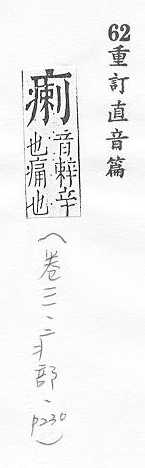 62重訂直音篇
瘌
音辢辛
也痛也
(卷三、疒部、P230)